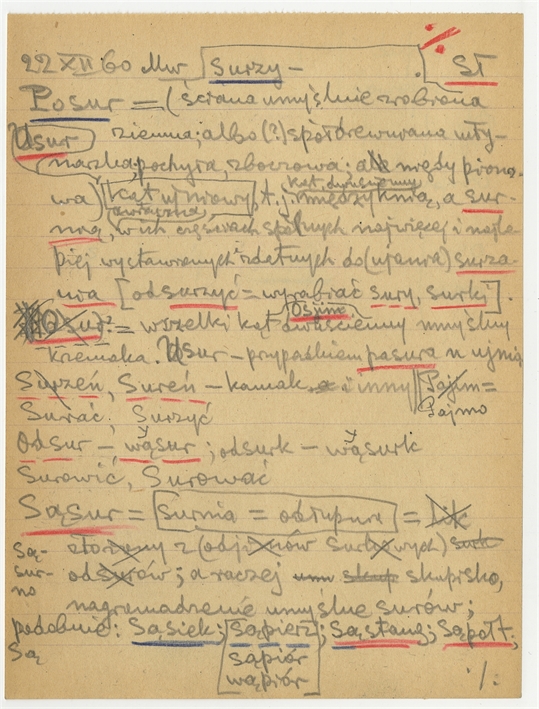 22 XII 60 Mw, Surzy – . Sł
Posur = (ściana umyślnie zrobiona
Usur ziemna; albo (?) współrewurana
pochyła, zboczowa; ale nigdy piono-
wa) kąt ujniowy, t. j. kąt dwuścienny między nią, a sur-
nią, w ich częściach spólnych najwięcej i najle-
piej wystawionych zdatnych do (ujania) surza-
nia [odsurzyć = wyrabiać sury, surki].
(Osur)? = wszelki kąt Osjim dwuścienny umyślny
krzemaka. Usur – przypadkiem pasura u ujnią
Surzeń, Sureń – kamak i inny Pajim =
Surać, Surzyć Pajmo
Odsur – wąsur; odsurk – wąsurk
Surowić, Surować
Sąsur = Surnia = odłupnia =
Są- złożony z (odjimów surkowych)
sur- odsurów; a raczej skup skupisko,
no nagromadzenie umyślne surów;
podobnie: Sąsiek; sąpierz; Sąstang; Sąpołt;
Są sąpiór
wąpiór ./.